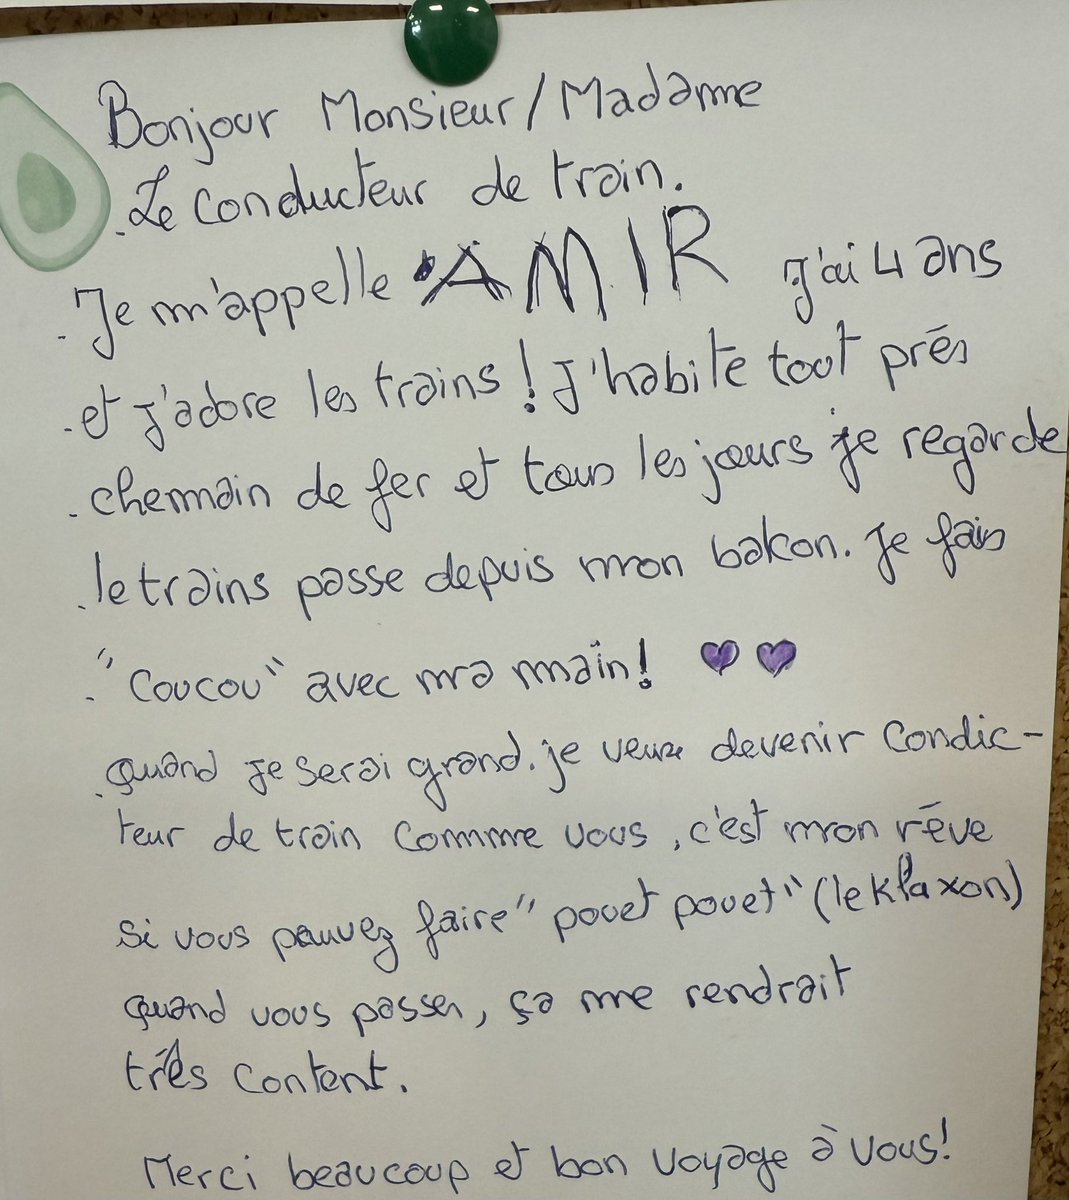 Bonjour Monsieur/Madame
.Le conducteur de train.
.Je m'appelle AMIR j'ai 4 ans
.et j'adore les trains! J'habite tout prés
.chemain de fer et tous les jours je regarde
.le trains passe depuis mon balcon. Je fais
."Coucou" avec ma main! 💜 💜
.quand je serai grand. je veux devenir Condic-
teur de train comme vous, c'est mon rêve
si vous pouvez faire "pouet pouet" (le klaxon)
quand vous passer, ça me rendrait
très content.
Merci beaucoup et bon voyage à vous!